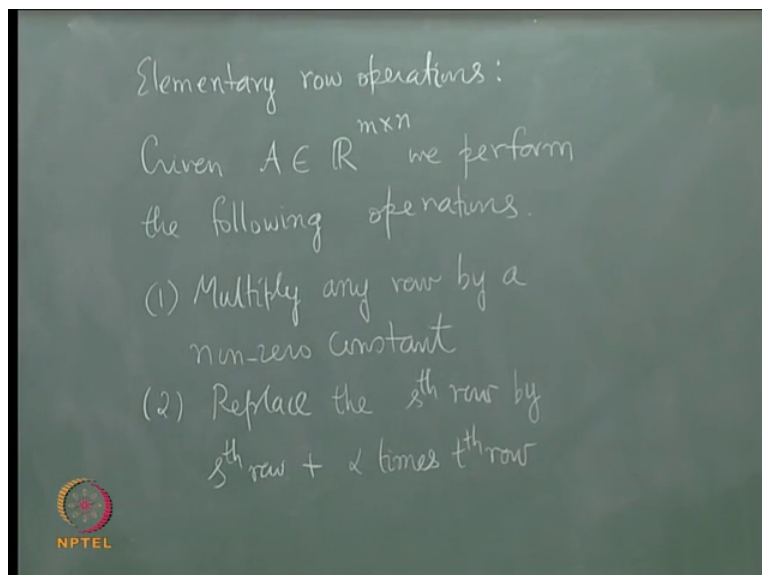 Elementary row operations:
Given A ∈ ℝ^{m×n} we perform
the following operations.
(1) Multiply any row by a
non-zero constant
(2) Replace the s^{th} row by
s^{th} row + α times t^{th} row
NPTEL